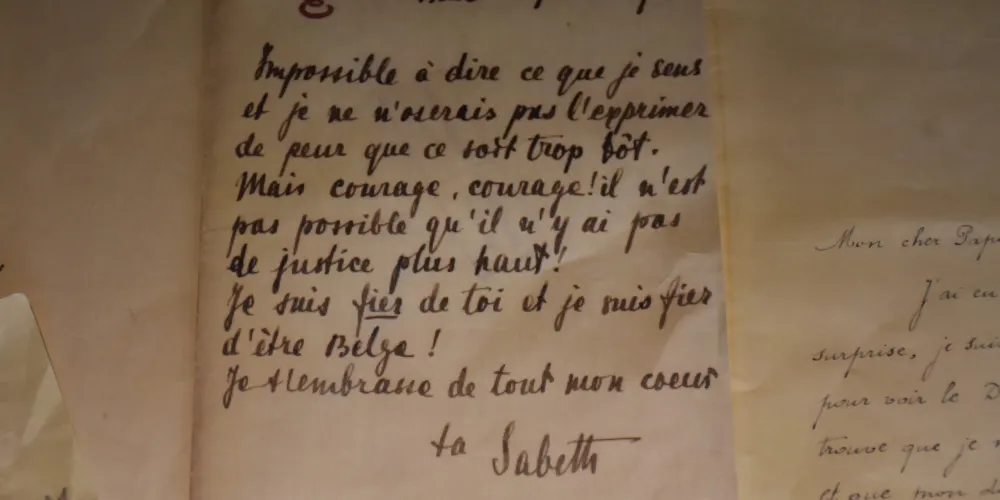 Impossible à dire ce que je sens
et je ne n'oserais pas l'epprimer
de peur que ce soit trop tôt.
Mais courage, courage! il n'est
pas possible qu'il n'y ai pas
de justice plus haut!
Je suis fier de toi et je suis fier
d'être Belge!
Je t'embrasse de tout mon coeur
ta Sabeth
Mon cher Pap
J'ai eu
surprise, je sui
pour voir le D
trouve que je
et que mon